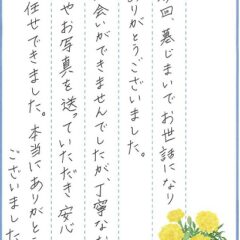 回、墓じまいでお世話になり
りがとうございました。
会いができませんでしたが、丁寧な
やお写真を送っていただき安心
任せできました。本当にありがと
ございました